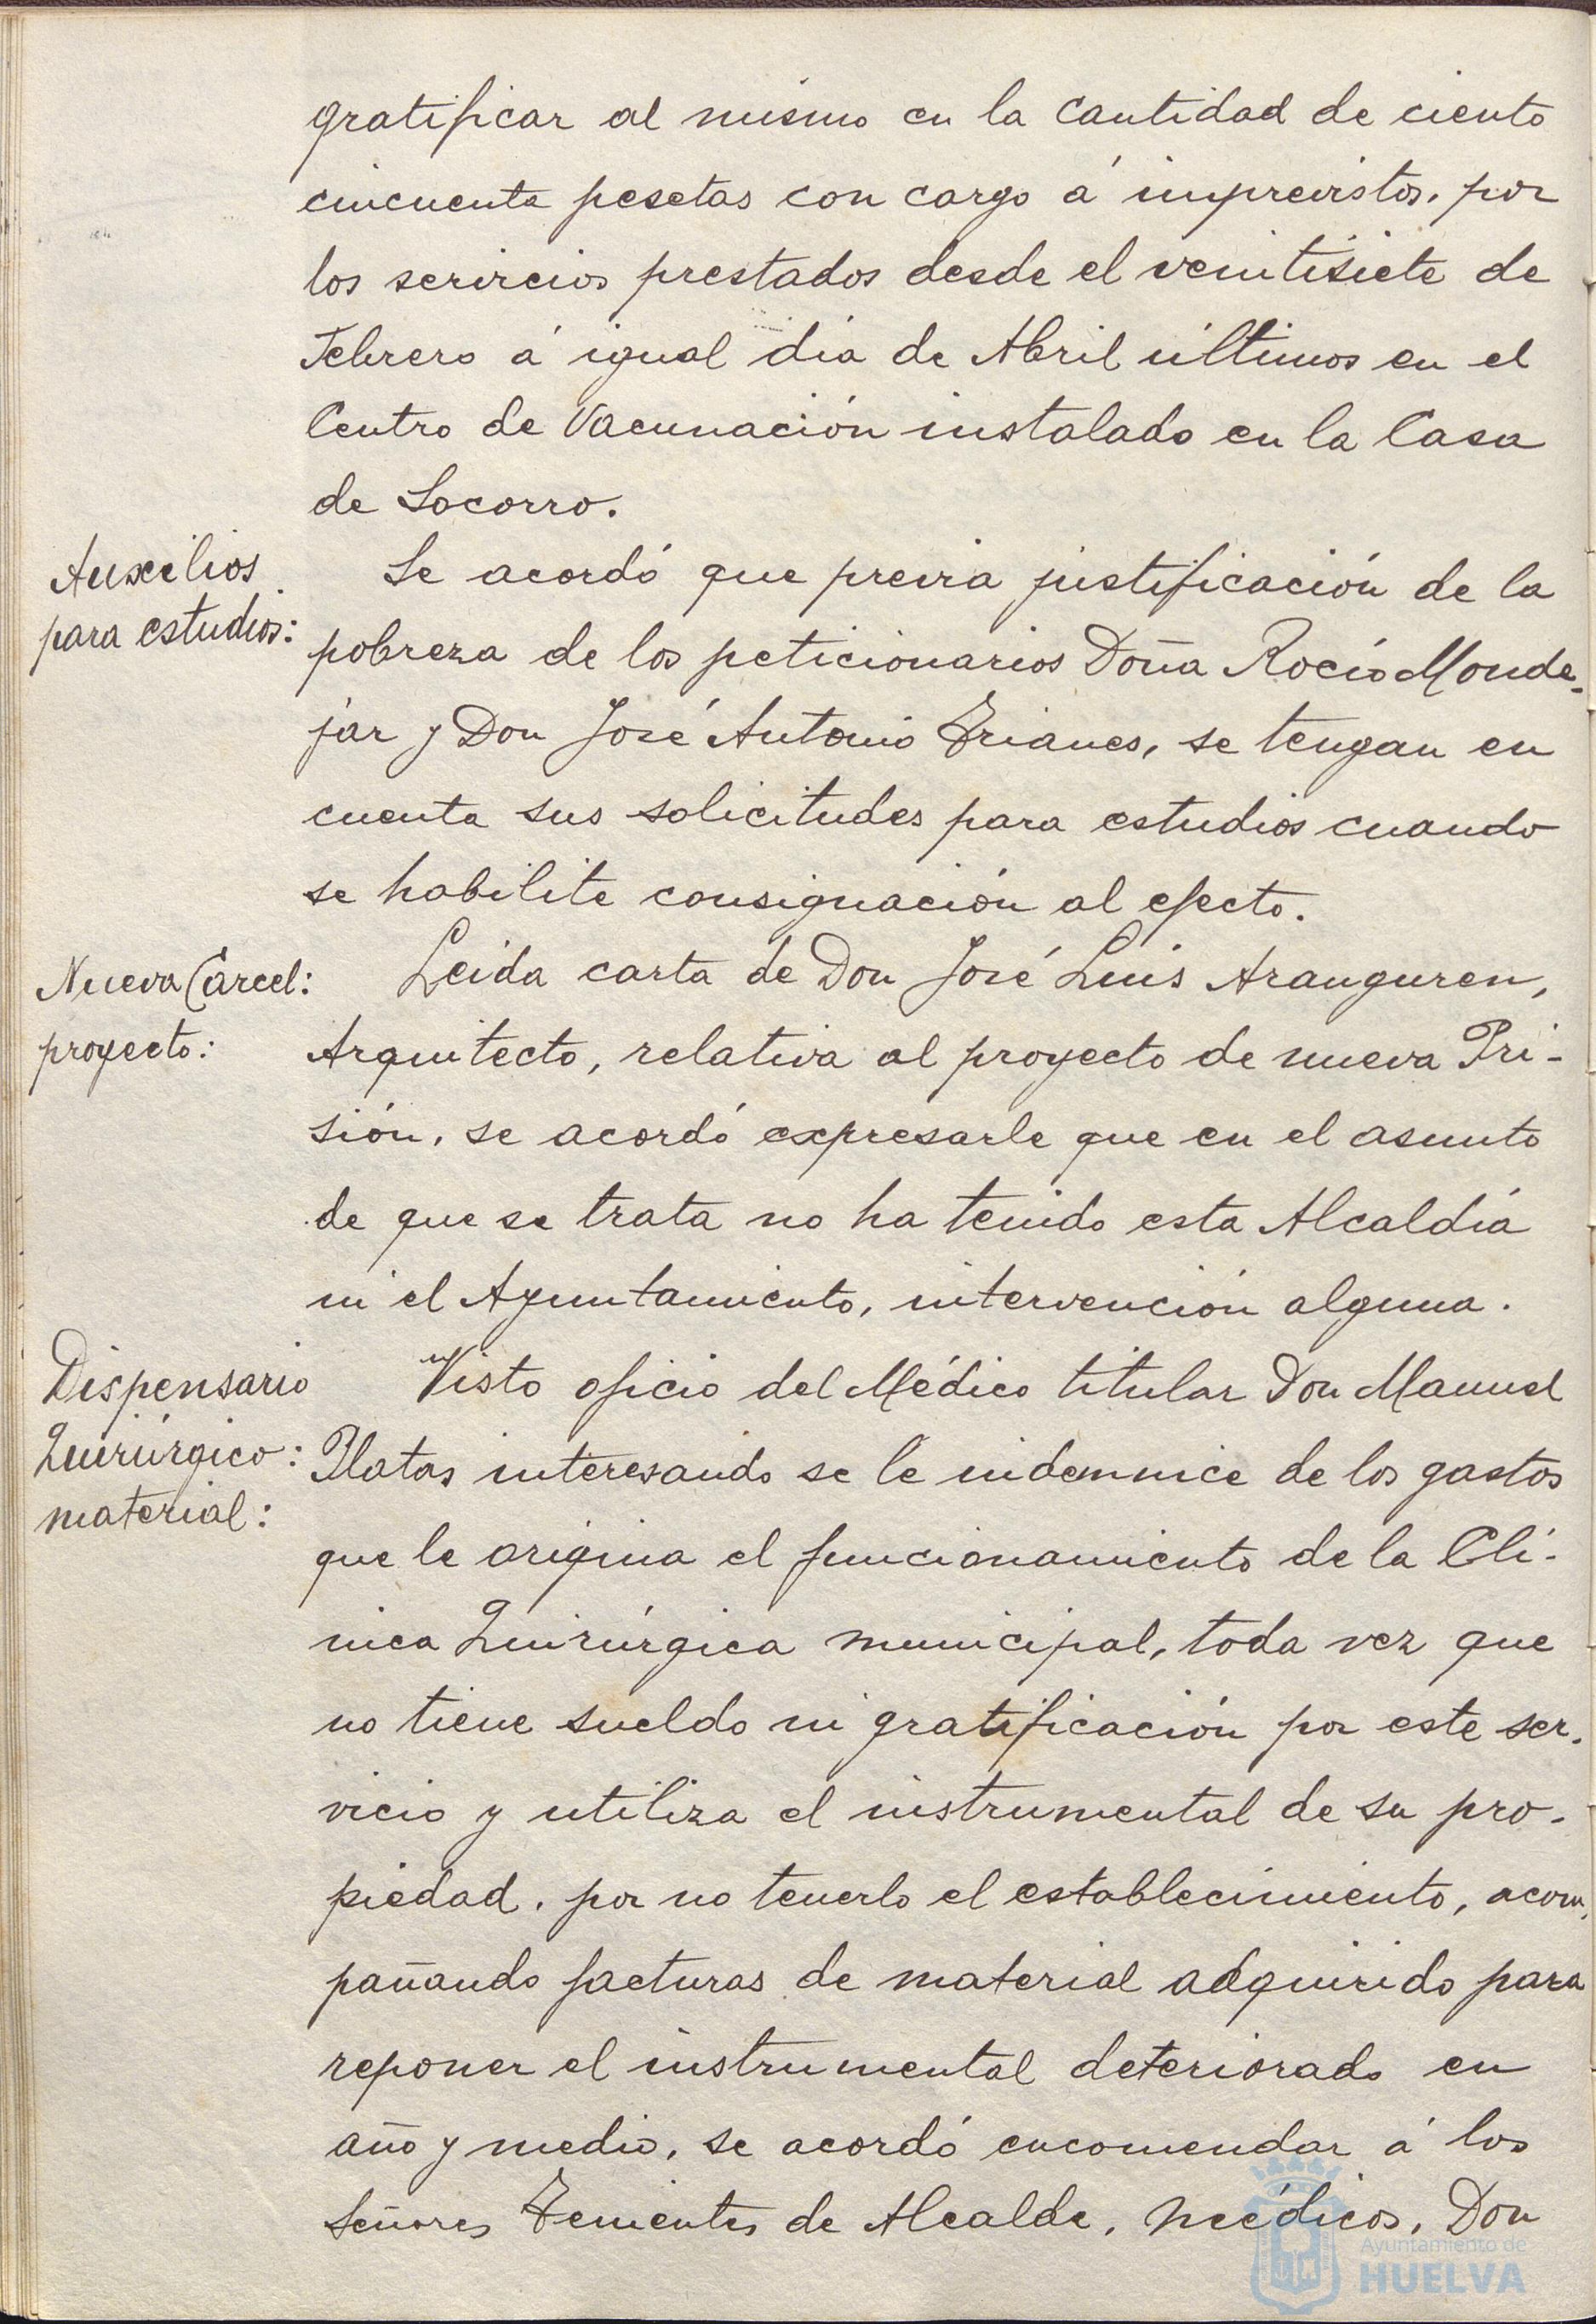 gratificar al mismo en la cantidad de ciento
cincuenta pesetas con cargo á imprevistos, por
los servicios prestados desde el veintisiete de
Febrero á igual día de Abril últimos en el
Centro de Vacunación instalado en la Casa
de Socorro.
Auxilios
para estudios:
Se acordó que previa justificación de la
pobreza de los peticionarios Doña Rocío Monde-
jar y Don José Antonio Trianes, se tengan en
cuenta sus solicitudes para estudios cuando
se habilite consignación al efecto.
Nueva Carcel:
proyecto:
Leida carta de Don José Luis Aranguren,
Arquitecto, relativa al proyecto de nueva Pri-
sión, se acordó expresarle que en el asunto
de que se trata no ha tenido esta Alcaldía
ni el Ayuntamiento, intervención alguna.
Dispensario
Quirúrgico:
material:
Visto oficio del Médico titular Don Manuel
Platas interesando se le indemnice de los gastos
que le origina el funcionamiento de la Clí-
nica Quirúrgica municipal, toda vez que
no tiene sueldo ni gratificación por este ser-
vicio y utiliza el instrumental de su pro-
piedad, por no tenerlo el establecimiento, acom-
pañando facturas de material adquirido para
reponer el instrumental deteriorado en
año y medio, se acordó encomendar á los
Señores Tenientes de Alcalde, Médicos, Don
Ayuntamiento de
HUELVA